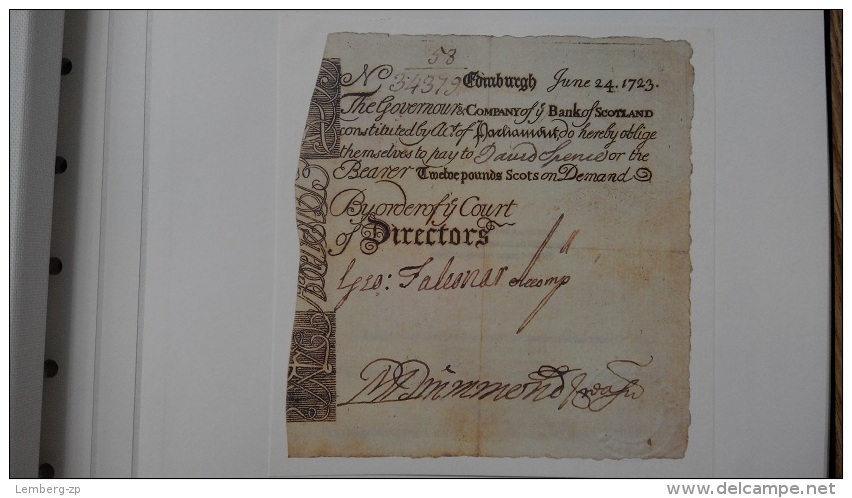 58
No 34379 Edinburgh June 24. 1723.
The Governour & COMPANY of ÿ Bank of SCOTLAND
constituted by Act of Parliament, do hereby oblige
themselves to pay to David Spence or the
Bearer Twelve pounds Scots on Demand
By order of ÿ Court
of Directors
Geo: Falconar Accomp
Drummond
Lemberg-zp
www.delcampe.net